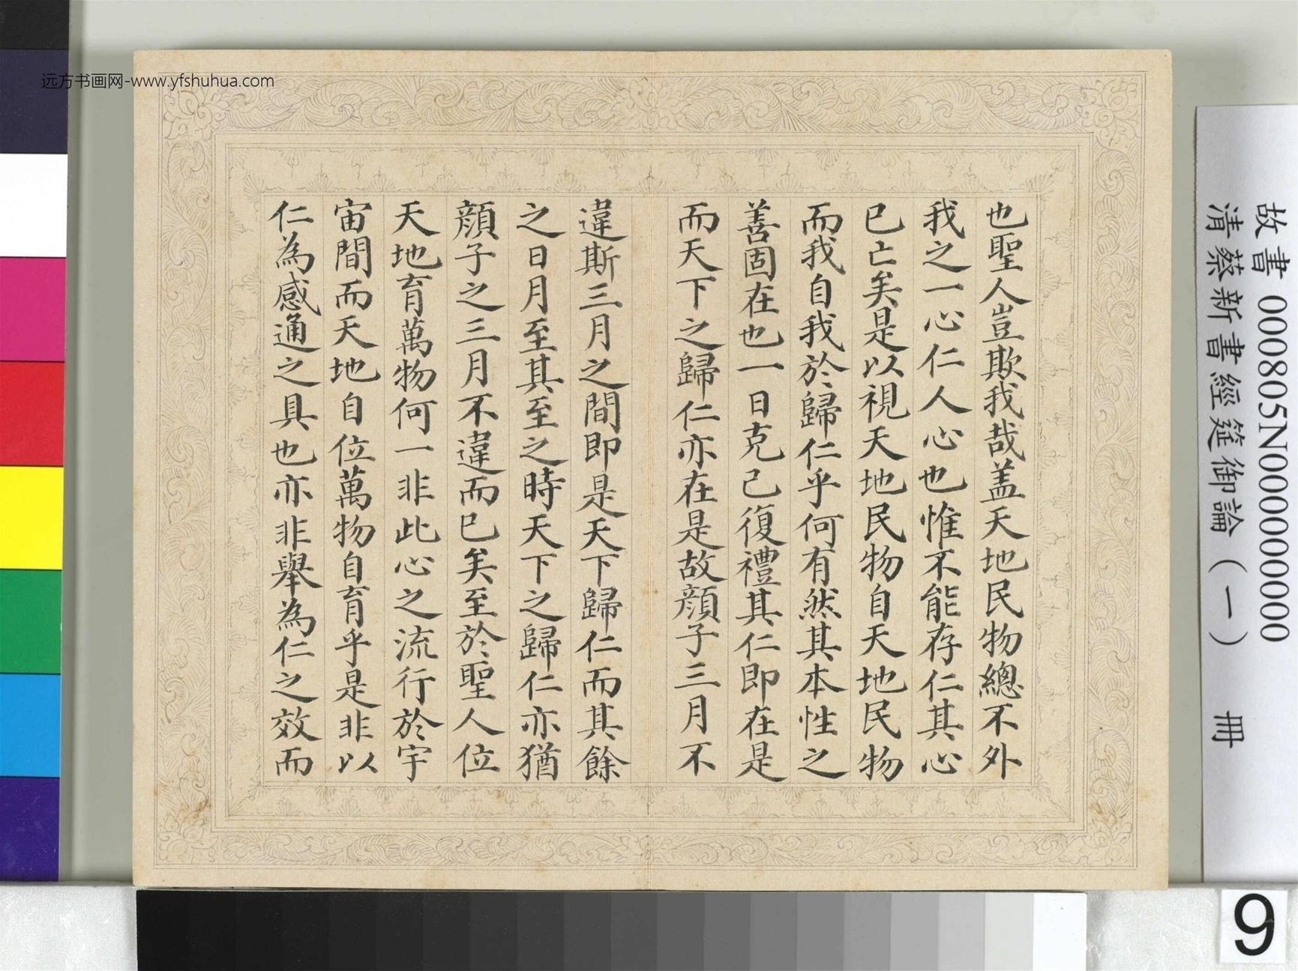 也聖人豈欺我哉盖天地民物總不外
我之一心仁人心也惟不能存仁其心
已亡矣是以視天地民物自天地民物
而我自我於歸仁乎何有然其本性之
善固在也一日克己復禮其仁即在是
而天下之歸仁亦在是故顔子三月不
違斯三月之間即是天下歸仁而其餘
之日月至其至之時天下之歸仁亦猶
顔子之三月不違而已矣至於聖人位
天地育萬物何一非此心之流行於宇
宙間而天地自位萬物自育乎是非以
仁為感通之具也亦非舉為仁之效而
远方书画网-www.yfshuhua.com
故書 000805N000000000
清蔡新書經筵御論（一） 冊
9